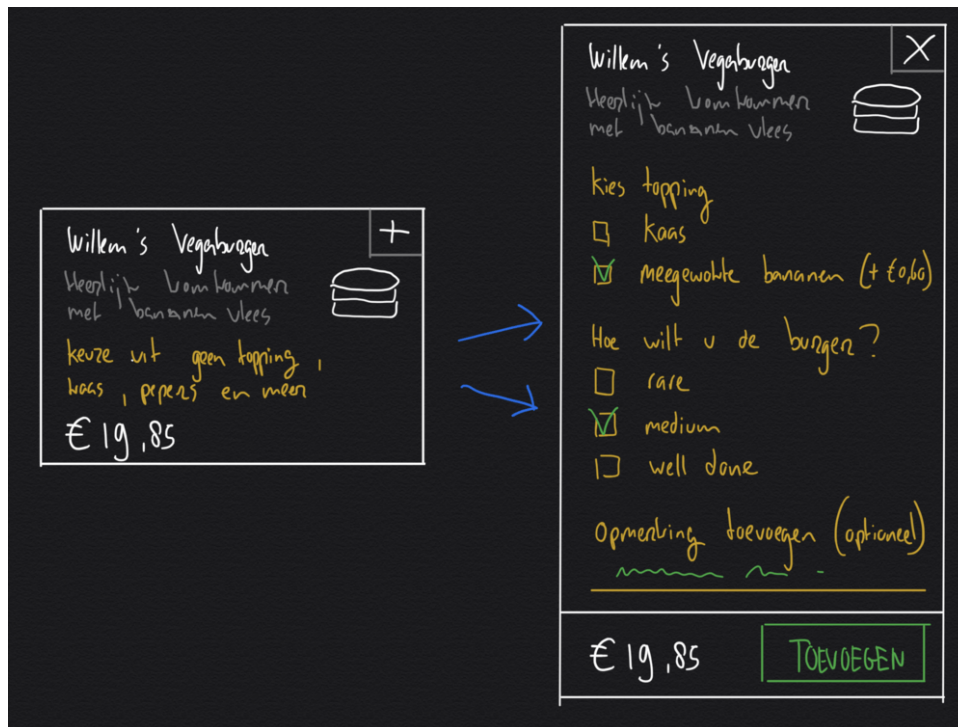 Willem's Vegaburger
+
Heerlijk komkommer
met bananen vlees
keuze uit geen topping,
kaas, pepers en meer
€19,85
Willem's Vegaburger
X
Heerlijk komkommer
met bananen vlees
kies topping
kaas
meegewokte bananen (+ €0,60)
Hoe wilt u de burger?
rare
medium
well done
Opmerking toevoegen (optioneel)
€19,85
TOEVOEGEN